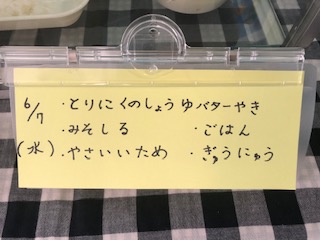 6/7 ・とりにくのしょうゆバターやき
・みそしる ・ごはん
(水) ・やさいいため ・ぎゅうにゅう